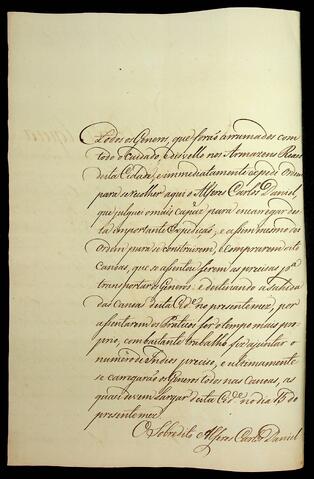 Todos os Generos, que forão arrumados com
todo o Cuidado, e disvello nos Armazens Reaes
desta Cidade, e immediatamente expedi Ordem
para se recolher aqui o Alferes Carlos Daniel,
que julguei o mais capaz para encarregar des-
ta importante Expedição, e assim mesmo dei
Ordem para se construirem, e comprarem oito
Canoas, que se assentou serem as precisas pª
transportar os Generos: e destinando a sahida
das Canoas desta Cidᵉ no presente mez, por
assentarem os Praticos ser o tempo mais pro-
prio, com bastante trabalho fiz ajuntar o
numero de Indios preciso, e ultimamente
se carregarão os Generos todos nas Canoas, as
quaes devem largar desta Cidᵉ no dia 15 do
presente mez
O Sobredito Alferes Carlos Daniel